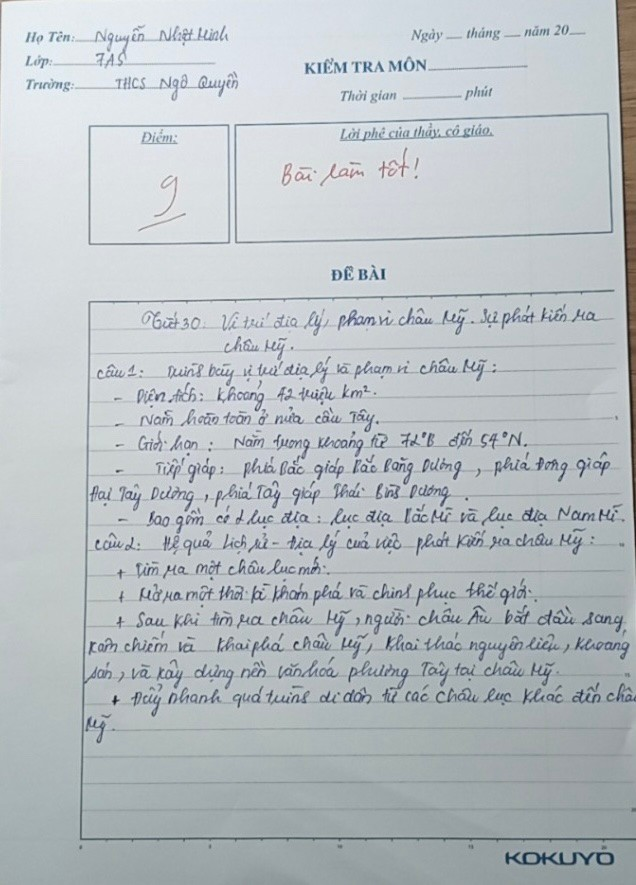 Họ Tên: Nguyễn Nhật Minh
Ngày __ tháng __ năm 20__
Lớp: 7A5
KIỂM TRA MÔN
Trường: THCS Ngô Quyền
Thời gian ______ phút
Điểm:
Lời phê của thầy, cô giáo.
9
Bài làm tốt!
ĐỀ BÀI
Tiết 30: Vị trí địa lý, phạm vi châu Mỹ. Sự phát kiến ra
châu Mỹ.
câu 1: Trình bày vị trí địa lý và phạm vi châu Mỹ:
- Diện tích: khoảng 42 triệu km².
- Nằm hoàn toàn ở nửa cầu Tây.
- Giới hạn: Nằm trong khoảng từ 72°B đến 54°N.
- Tiếp giáp: phía Bắc giáp Bắc Băng Dương, phía Đông giáp
Đại Tây Dương, phía Tây giáp Thái Bình Dương.
- Bao gồm có 2 lục địa: lục địa Bắc Mĩ và lục địa Nam Mĩ.
câu 2: Hệ quả Lịch sử - Địa lý của việc phát kiến ra châu Mỹ:
+ Tìm ra một châu lục mới.
+ Mở ra một thời kì khám phá và chinh phục thế giới.
+ Sau khi tìm ra châu Mỹ, người châu Âu bắt đầu sang
xâm chiếm và khai phá châu Mỹ, khai thác nguyên liệu, khoáng
sản, và xây dựng nền văn hóa phương Tây tại châu Mỹ.
+ Đẩy nhanh quá trình di dân từ các châu lục khác đến châu
Mỹ.
0 5 10 15 20
KOKUYO